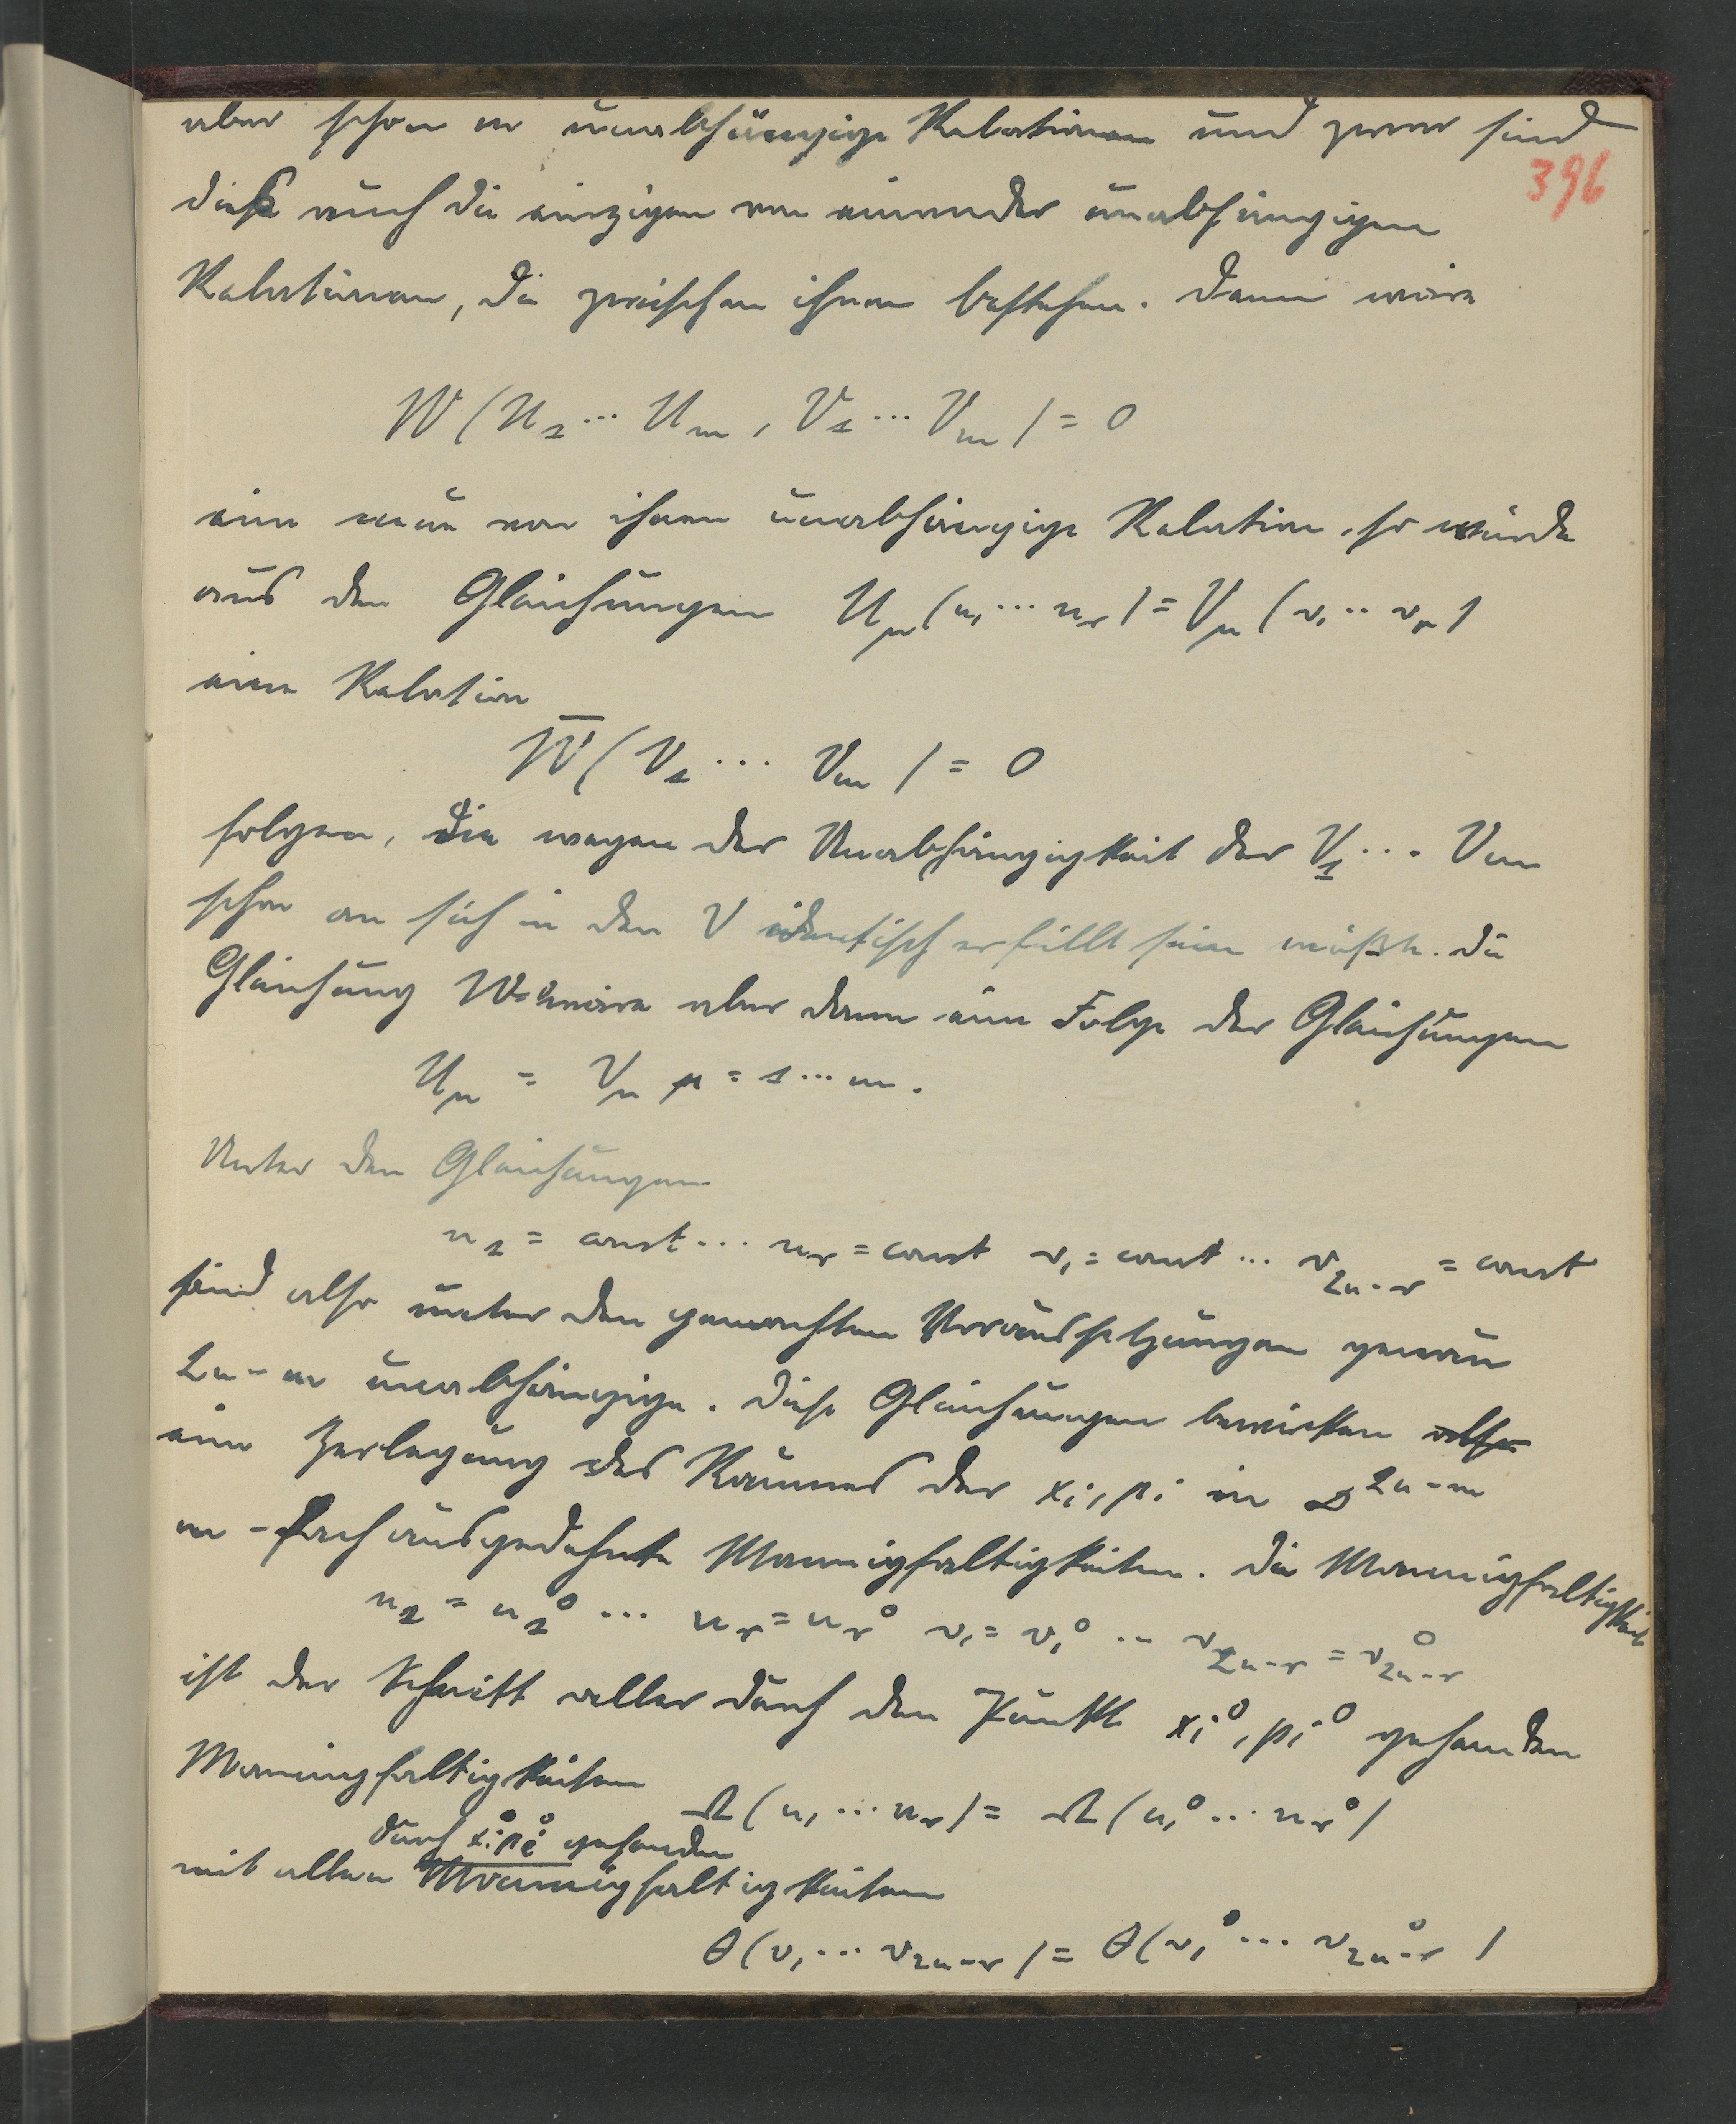 aber schon m unabhängige Relationen und zwar sind
396
dieß auch die einzigen von einander unabhängigen
Relationen, die zwischen ihnen bestehen. Denn wäre
W(U₁ ··· Uₘ, V₁ ··· Vₘ) = 0
eine neue von ihnen unabhängige Relation, so würde
aus den Gleichungen U_μ(u₁ ··· uᵣ) = V_μ(v₁ ·· vᵣ)
eine Relation
W̅(V₁ ··· Vₘ) = 0
folgen, die wegen der Unabhängigkeit der V₁ ··· Vₘ
schon an sich in den V identisch erfüllt sein müßte. Die
Gleichung W=0 wäre aber dann eine Folge der Gleichungen
U_μ = V_μ μ = 1 ··· m.
Unter den Gleichungen
u₁ = const ··· uᵣ = const v₁ = const ··· v₂ₙ₋ᵣ = const
sind also unter den gemachten Voraussetzungen genau
2n-m unabhängige. Diese Gleichungen bewirken also
eine Zerlegung des Raumes der xᵢ, pᵢ in ∞²ⁿ⁻ᵐ
m-fach ausgedehnte Mannigfaltigkeiten. Die Mannigfaltigkeit
u₁ = u₁⁰ ··· uᵣ = uᵣ⁰ v₁ = v₁⁰ ·· v₂ₙ₋ᵣ = v₂ₙ₋ᵣ⁰
ist der Schnitt aller durch den Punkt xᵢ⁰, pᵢ⁰ gehenden
Mannigfaltigkeiten
Ω(u₁ ··· uᵣ) = Ω(u₁⁰ ··· uᵣ⁰)
durch xᵢ⁰ pᵢ⁰ gehenden
mit allen Mannigfaltigkeiten
θ(v₁ ··· v₂ₙ₋ᵣ) = θ(v₁⁰ ··· v₂ₙ₋ᵣ⁰)